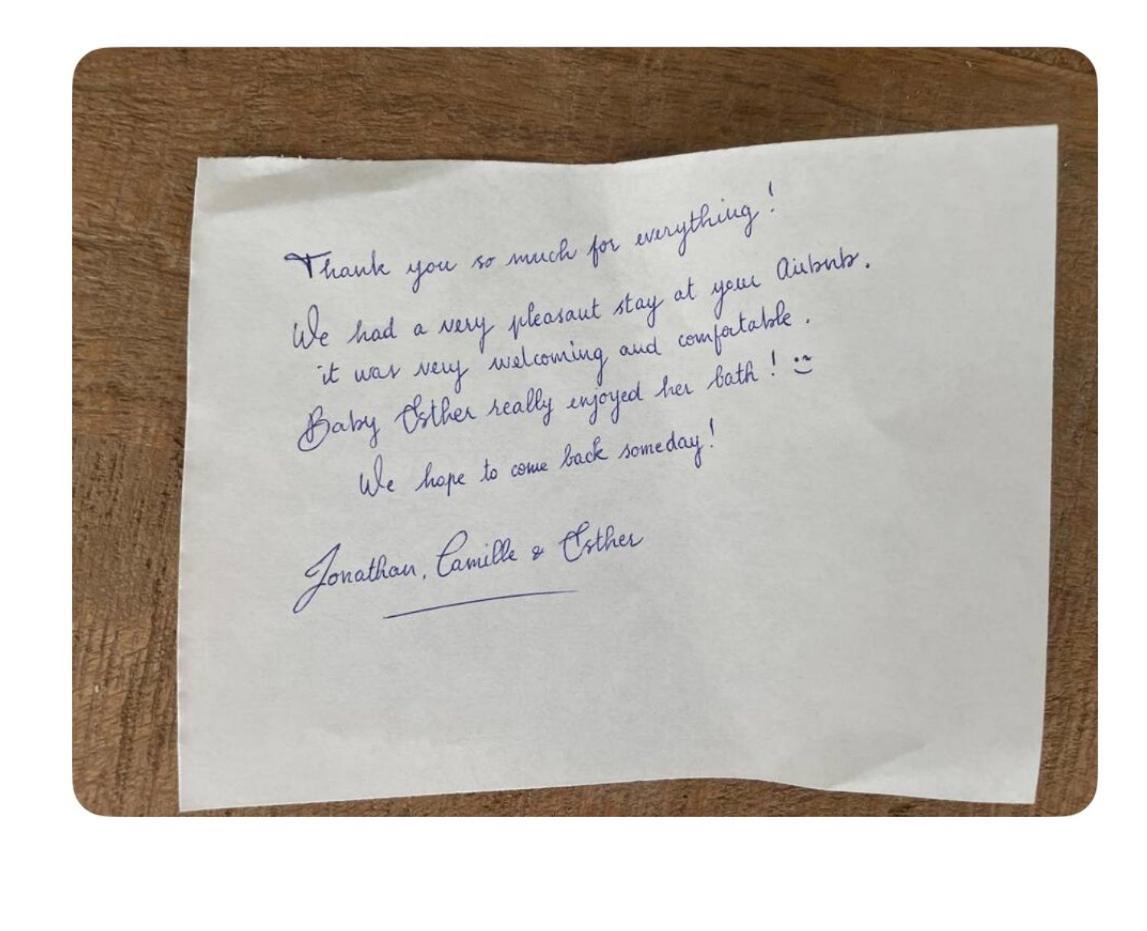 Thank you so much for everything!
We had a very pleasant stay at your Airbnb.
it was very welcoming and comfortable.
Baby Esther really enjoyed her bath! :)
We hope to come back someday!
Jonathan, Camille & Esther